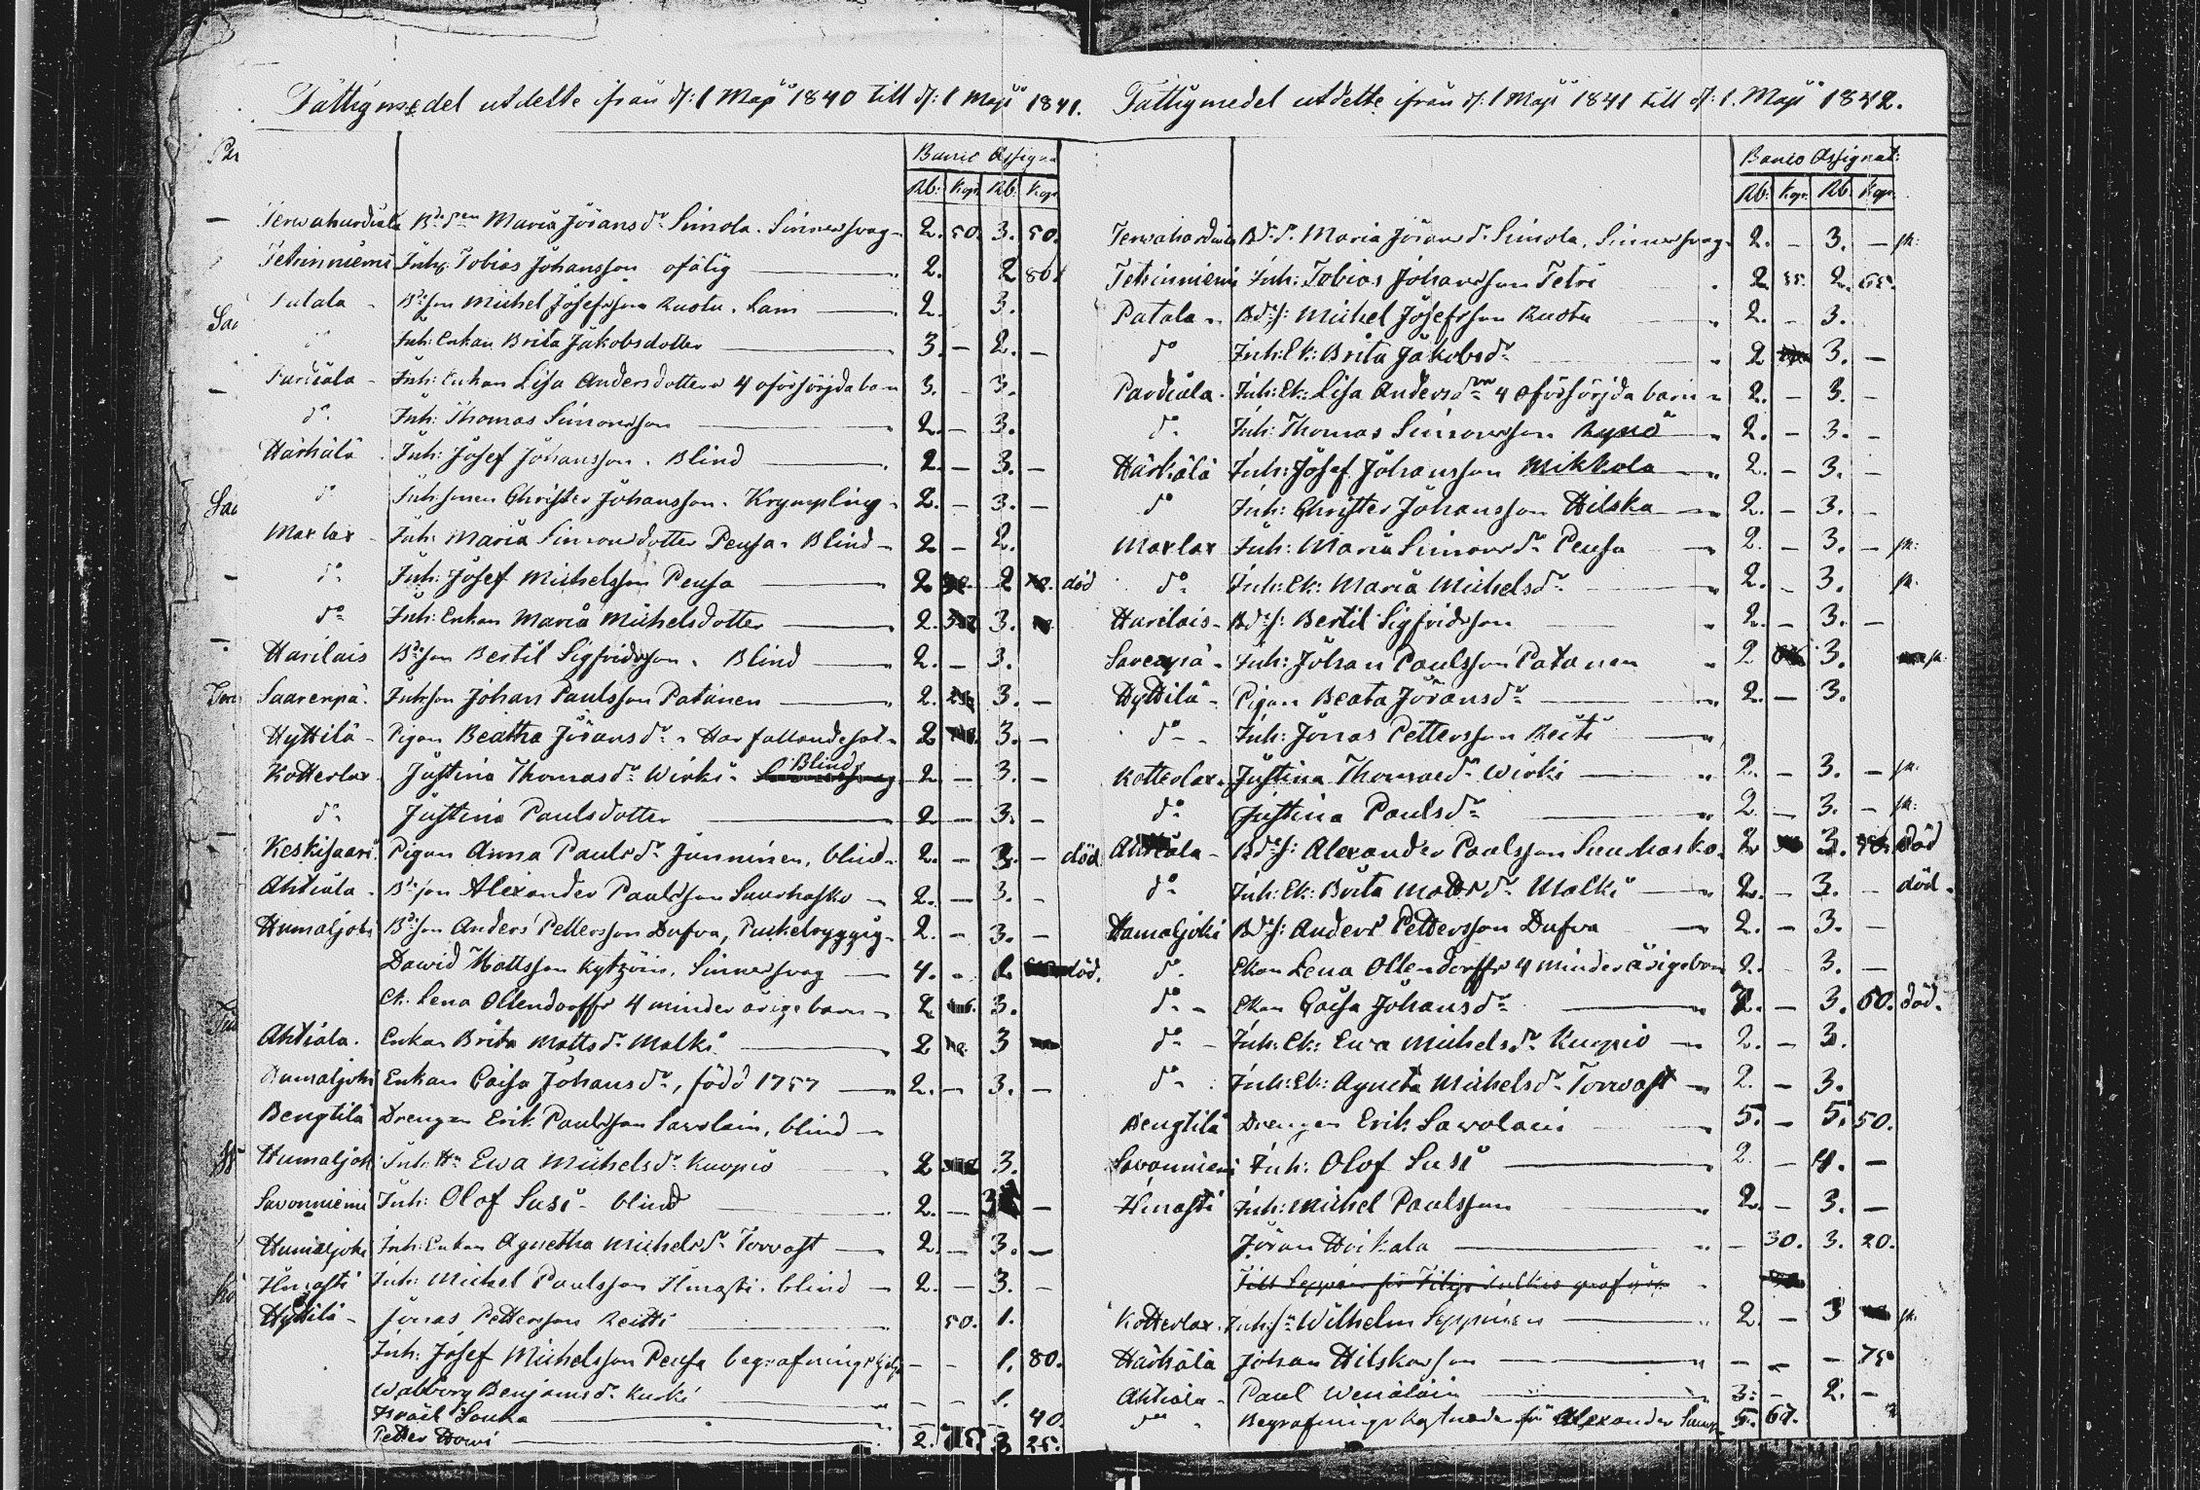 Fattigmedel utdelte ifrån d: 1 Maji 1840 till d: 1 Maji 1841.
Banco Assigna
Rb: Kop. Rb. Kop.
Bdr Maria Jöransdr Simola. Sinnessvag 2. 50. 3. 50.
Tetrinniemi Inh. Tobias Johansson ofälig 2. 2 80
Patala Michel Josefsson Ruotu. Lam 2. 3.
Inh: Enkan Brita Jakobsdotter 3. – 2. –
Pardiala Inh: Enkan Lisa Andersdotter 4 oförsörjda barn 3. – 3.
do Inh: Thomas Simonsson 2. – 3.
Härkälä Inh: Josef Johansson. Blind 2. – 3. –
do Christer Johansson. Krympling 2. – 3. –
Maxlax Inh: Maria Simonsdotter Peusa. Blind 2 – 2.
do Inh: Josef Michelsson Peusa 2 2 död
do Inh: Enkan Maria Michelsdotter 2. 3.
Harilais Bertil Sigfridsson. Blind 2. – 3.
Saarenpä. Inh:son Johan Paulsson Patanen 2. 3. –
Hyttilä Pigan Beatha Jöransdr. Har fallandesot 2 3. –
Kotterlax Justina Thomasdr Wirki Blind 2 – 3. –
do Justina Paulsdotter 2 – 3. –
Keskisaari Pigan Anna Paulsdr Junninen, blind 2. – 3. – död
Ahtiala Alexander Paulsson Suurhasko 2. – 3. –
Humaljoki Anders Pettersson Dufva, Puckelryggig 2. – 3. –
Dawid Mattsson Kytzöin, Sinnessvag 4. – död.
Ek: Lena Ollendorffs 4 minderåriga barn 2. 3.
Ahtiala. Enkan Brita Mattsdr Malki 2 3
Humaljoki Enkan Caisa Johansdr, född 1757 2. – 3. –
Bengtilä Drengen Erik Paulsson Savolain, blind
Humaljoki Ewa Michelsdr Kuopio 2 3.
Savonniemi Inh: Olof Susi blind 2. – 3 –
Humaljoki Inh: Enkan Agnetha Michelsdr Torvast 2. – 3. –
Hinasti Inh: Michel Paulsson Hinasti. blind 2. – 3. –
Hyttilä Jonas Pettersson Reitti 50. 1.
Inh: Josef Michelsson Peusa begrafningshjelp – – 1. 80.
Walborg Benjamsdr Kuski – – 1.
Israel Sonka – – – 40.
Petter Howi 2. 75. 3 25.
Fattigmedel utdelte ifrån d: 1 Maji 1841 till d: 1. Maji 1842.
Banco Assignat:
Rb: Kop. Rb. Kop.
Maria Jöransdr Simola, Sinnessvag 2. – 3. –
Tetrinniemi Inh: Tobias Johansson Tetri 2. 2.
Patala Michel Josefsson Ruotu 2. – 3.
do Inh: Ek: Brita Jakobsdr 2 3. –
Pardiala Inh: Ek: Lisa Andersdr 4 oförsörjda barn 2. – 3. –
do Inh: Thomas Simonsson 2. – 3. –
Härkälä Inh: Josef Johansson Mikkola 2. – 3. –
do Inh: Christer Johansson Hilska 2. – 3. –
Maxlax Inh: Maria Simonsdr Peusa 2. – 3. –
do Inh: Ek: Maria Michelsdr 2. – 3.
Harilais Bertil Sigfridsson 2. – 3. –
Inh: Johan Paulsson Patanen 2 3.
Hyttilä Pigan Beata Jöransdr 2. – 3.
do Inh: Jonas Pettersson Reiti
Kotterlax Justina Thomasdr Wirki 2. – 3. –
do Justina Paulsdr 2. – 3. –
Ahtiala Alexander Paulsson Suurhasko 2 3. död
do Inh: Ek: Brita Mattsdr Malki 2. – 3. – död.
Humaljoki Anders Pettersson Dufva 2. – 3. –
do Ekan Lena Ollendorffs 4 minderåriga barn 2. 3. –
do Ekan Caisa Johansdr – 3. 60. död.
do Inh: Ek: Ewa Michelsdr Kuopio 2. – 3.
do Inh: Ek: Agneta Michelsdr Torvast 2. – 3.
Bengtilä Drengen Erik Savolain 5. – 5. 50.
Savonniemi Inh: Olof Susi 2. – 4. –
Hinasti Inh: Michel Paulsson 2. – 3. –
Jöran Hoikala – 30. 3. 20.
Kotterlax Wilhelm Seppinen 2. – 3
Härkälä Johan Hilskasson – – – 75
Ahtiala Paul Wenäläin 3. – 2. –
Begrafnings kostnader för Alexander 5. 67.